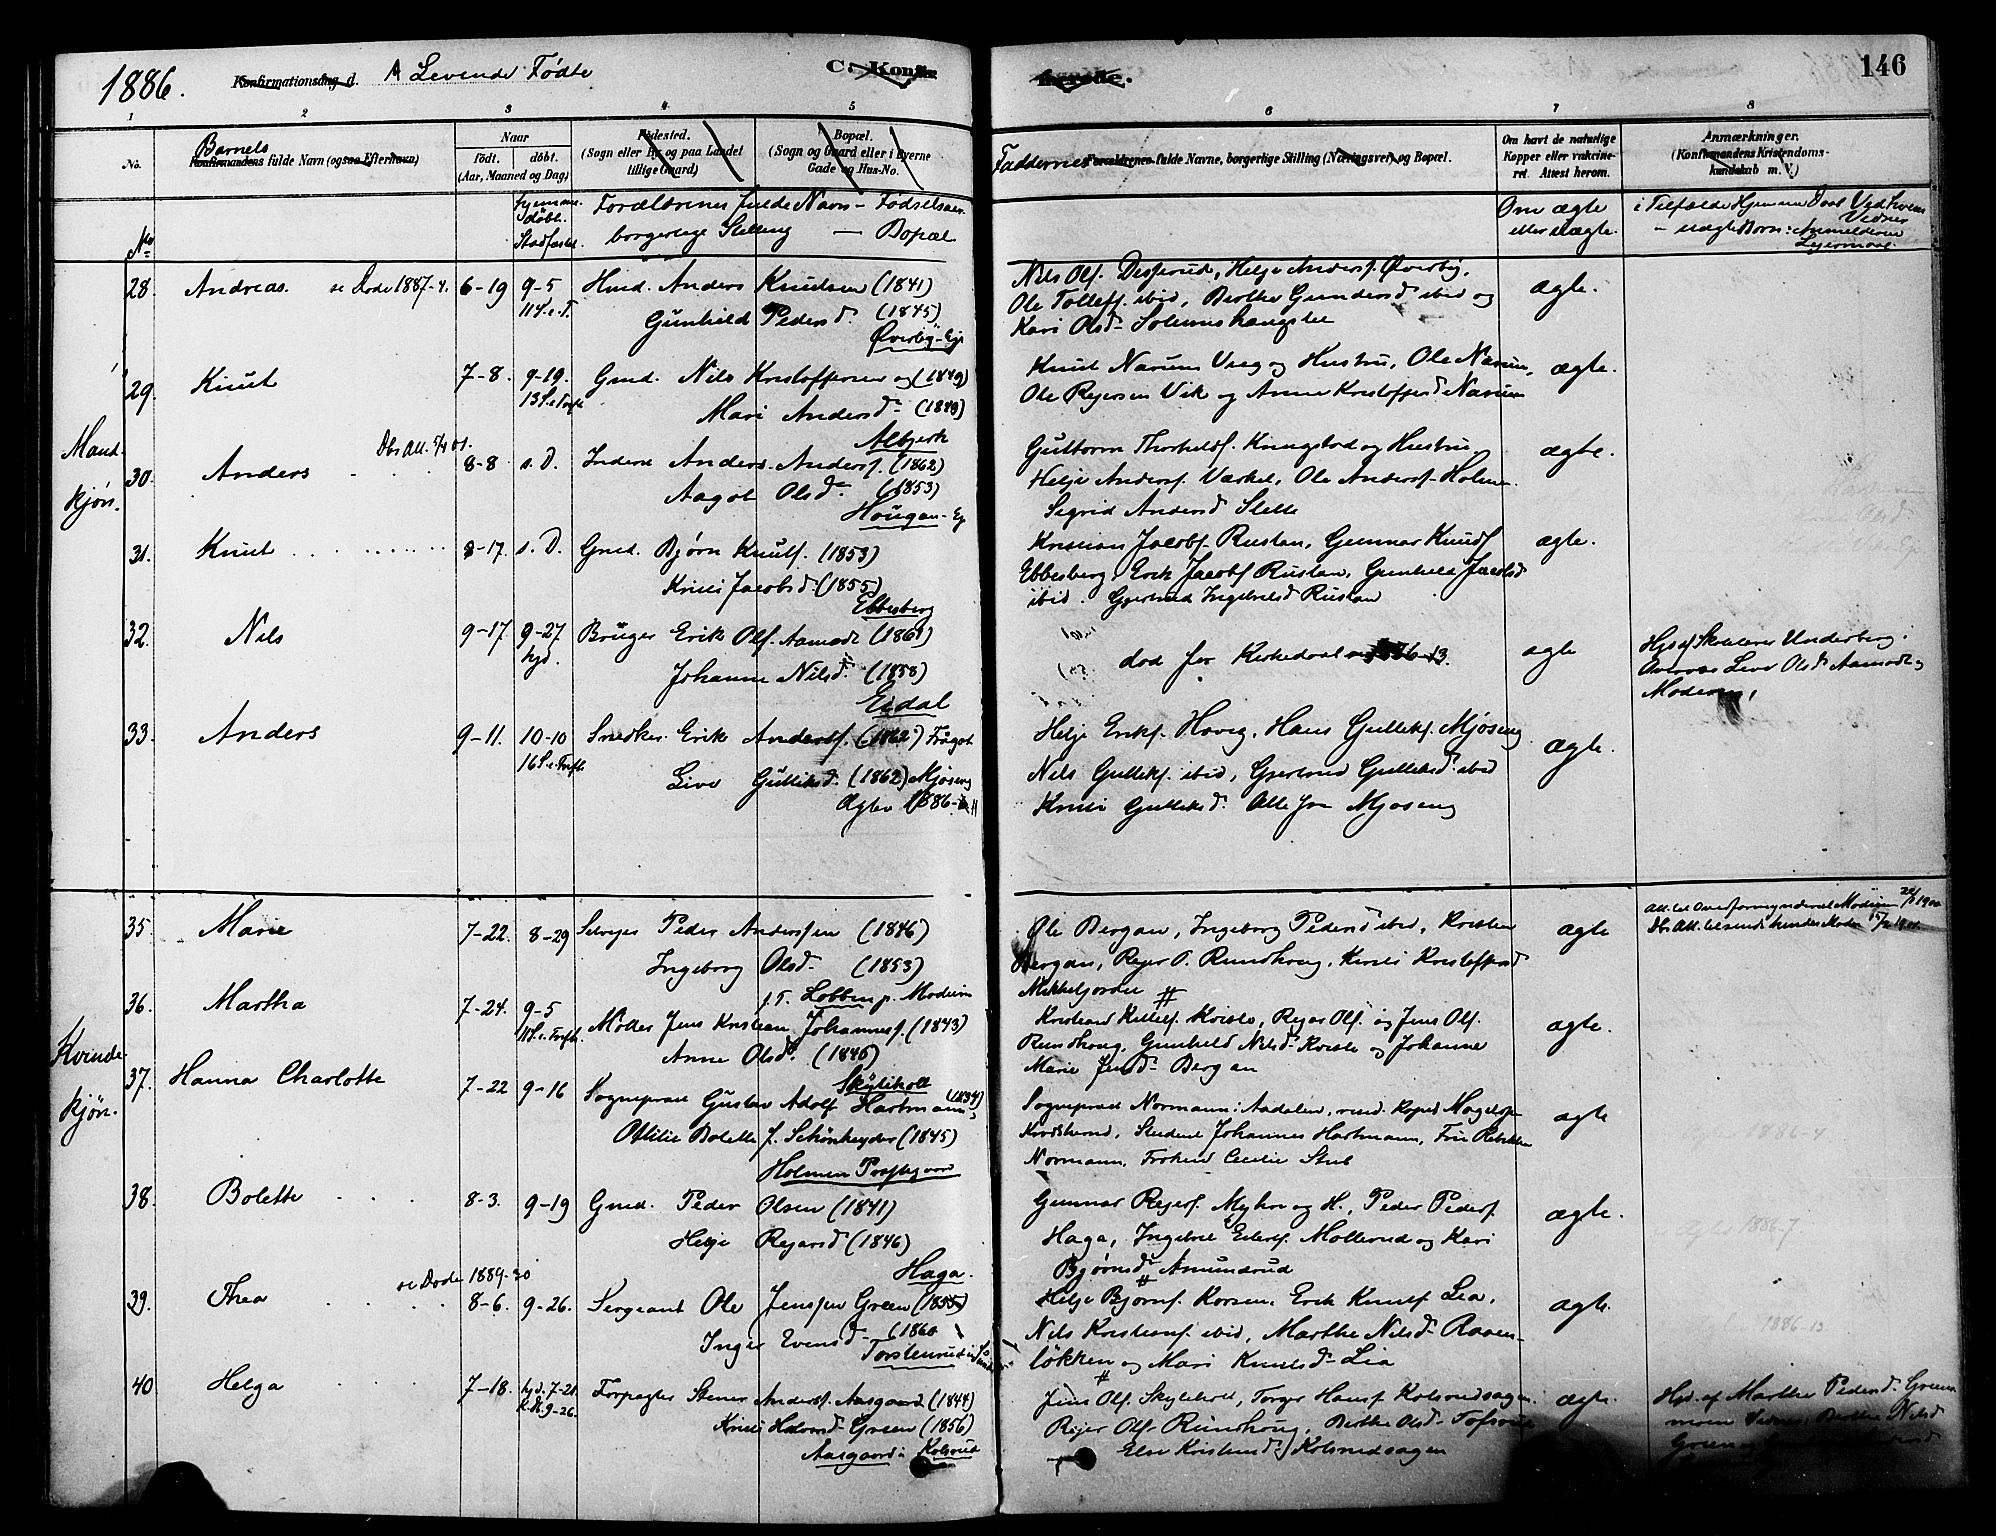 1886. Konfirmationsdag d. A Levende Födte C. Konfir-
merede. 146
1 2 3 4 5 6 7 8
No. Barnets Konfirmandens fulde Navn (ogsaa Efternavn)
Naar født. døbt. (Aar, Maaned og Dag)
Fødested. (Sogn eller By og paa Landet tillige Gaard)
Bopæl. (Sogn og Gaard eller i Byerne Gade og Hus-No.
Faddernes Forældrenes fulde Navne, borgerlige Stilling (Næringsvei) og Bopæl.
Om havt de naturlige Kopper eller vaccineret. Attest herom.
Anmærkninger. (Konfirmandens Kristendomskundskab m. V.)
Hjemme döbt. Stadfæstet
Forældrenes fulde Navn – Fødselsaar
borgerlige Stilling — Bopæl
Om ægte eller uægte.
i Tilfælde Hjemme Daab Ved hvem Vidner
– uægte Børn: Anmelderen Lejermaal
Mandkjøn.
28. Andreas. se Døde 1887-4. 6-19 9-5 Hmd. Anders Knudsen (1841)
11 S. e. T. Gunhild Pedersd. (1845)
Øverby-Eje
Nils Ols. Desserud, Helje Anders. Øverby,
Ole Tollefs. ibid, Berthe Gundersd ibid og
Kari Olsd.
ægte.
29. Knut 7-8. 9-19. Gmd. Nils Kristoffersen og (1849)
13 S. e. Trefh. Mari Andersd. (1849)
Albjerk
Knud Narum Veeg og Hustru, Ole Narum,
Ole Rejersen Vik og Anne Kristoffersd Narum
ægte.
30. Anders 8-8 s. D. Inders. Anders Anders. (1862)
Aagot Olsd. (1853)
Hougan-Ej
Guttorm Thorkilds. Kringstad og Hustru
Helje Anders. Værket, Ole Anders. Holme
Sigrid Andersd Slette
ægte.
31. Knut 8-17. s. D. Gmd. Bjørn Knuts. (1853)
Kristi Jacobsd (1855)
Ebbesberg
Kristian Jacobs. Rustan, Gunnar Knuds
Ebbesberg, Erik Jacobs Rustan, Gunhild Jacobsd
ibid. Gjertrud Ingebretsd Rustan
ægte.
32. Nils 9-17 9-27 hjd. Bruger Erik Ols. Aamodt (1861)
Johanne Nilsd. (1858)
Eidal
död før Kirkedaab 1886-13.
ægte
Hjd af Skolelærer Underberg.
Overvær Live Olsd Aamodt og
Moderen
33. Anders 9-11. 10-10 Snedker Erik Anders. (1862)
16 S. e. Trefh. Live Gulliksd. (1862) Mjøseng
Ægtev 1886-11
Helje Eriks. Hovig, Hans Gulleks. Mjøseng
Nils Gulleks. ibid, Gjertrud Gulleksd. ibid
Kristi Gulleksd. Alle fra Mjøseng
ægte.
Kvindekjøn.
35. Marie 7-22. 8-29 Selvejer Peder Anderssen (1846)
Ingeborg Olsd. (1853)
f. T. Lobben p. Modum
Ole Bergan, Ingeborg Pedersd ibid, Kristen
Bergan, Rejer O. Rundhoug, Kristi Kristoffersd
Mikkeljordet
ægte
Att. til Overformynderiet Modum 1900
36. Martha 7-24. 9-5 Møller Jens Kristian Johannes. (1843)
11 S. e. Trefh. Anne Olsd. (1846)
Skytiholt
Kristian Kittels. Kviste, Rejer Ols. og Jens Ols.
Rundhoug, Gunhild Nilsd. Kviste og Johanne
Marie Jensd. Bergan
ægte.
37. Hanna Charlotte 7-22 9-16 Sognepræst Gustav Adolf Hartmann (1834)
Ottilie Bolette f. Schönheyder (1845)
Holmen Præstegaard
Sognepræst Normann: Aadalen, resid. Kapel
Krødsherred, Student Johannes Hartmann, Fru Rebekka
Normann, Frøken Cecilie Stub
ægte
38. Bolette 8-3. 9-19 Gmd. Peder Olsen (1841)
Helje Rejersd (1846)
Haga.
Gunnar Rejers. Myhre og H., Peder Peders.
Haga, Ingebret Eilers. Mollerud og Kari
Bjørnsd. Amundrud
ægte.
39. Thea se Døde 1889-30 8-6. 9-26. Sergeant Ole Jenssen Green (1855)
Inger Evensd. (1860
Torstenrud
Helje Bjørns. Korsen, Erik Knuts. Lia,
Nils Kristians. ibid, Marthe Nilsd. Raaen-
løkken og Mari Knutsd. Lia
ægte.
40 Helga 7-18. hjd. 7-21. K.K. 9-26. Forpagter Stener Anders. Aasgaard (1844)
Kristi Halvorsd. Green (1856)
Aasgaard i Kolsrud
Jens Ols. Skytiholt, Torger Hans. Kolsrudsagen
Rejer Ols. Rundhoug, Berthe Olsd.
Else Kristensd. Kolsrudsagen
ægte.
Hjd. af Marthe Pedersd. Green
Vidner: Berthe Nilsd
Green